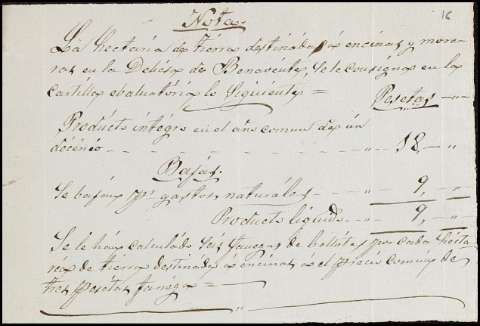 Nota.
16
La hectaria de tierra destinada á encinas y more-
ras en la Dehesa de Benavente, se le consigna en la
cartilla evaluatória lo siguiente =
Pesetas
Producto integro en el año comun de un
décenio - - - - - - - - " - 18, - "
Bajas.
Se bajan pr. gastos naturales - - - " - 9, - "
Producto liquido - - " - 9, - "
Se le há calculado seis fanegas de bellota por cada hecta-
réa de tierra destinada á encinas á el precio comun de
tres pesetas fanega =